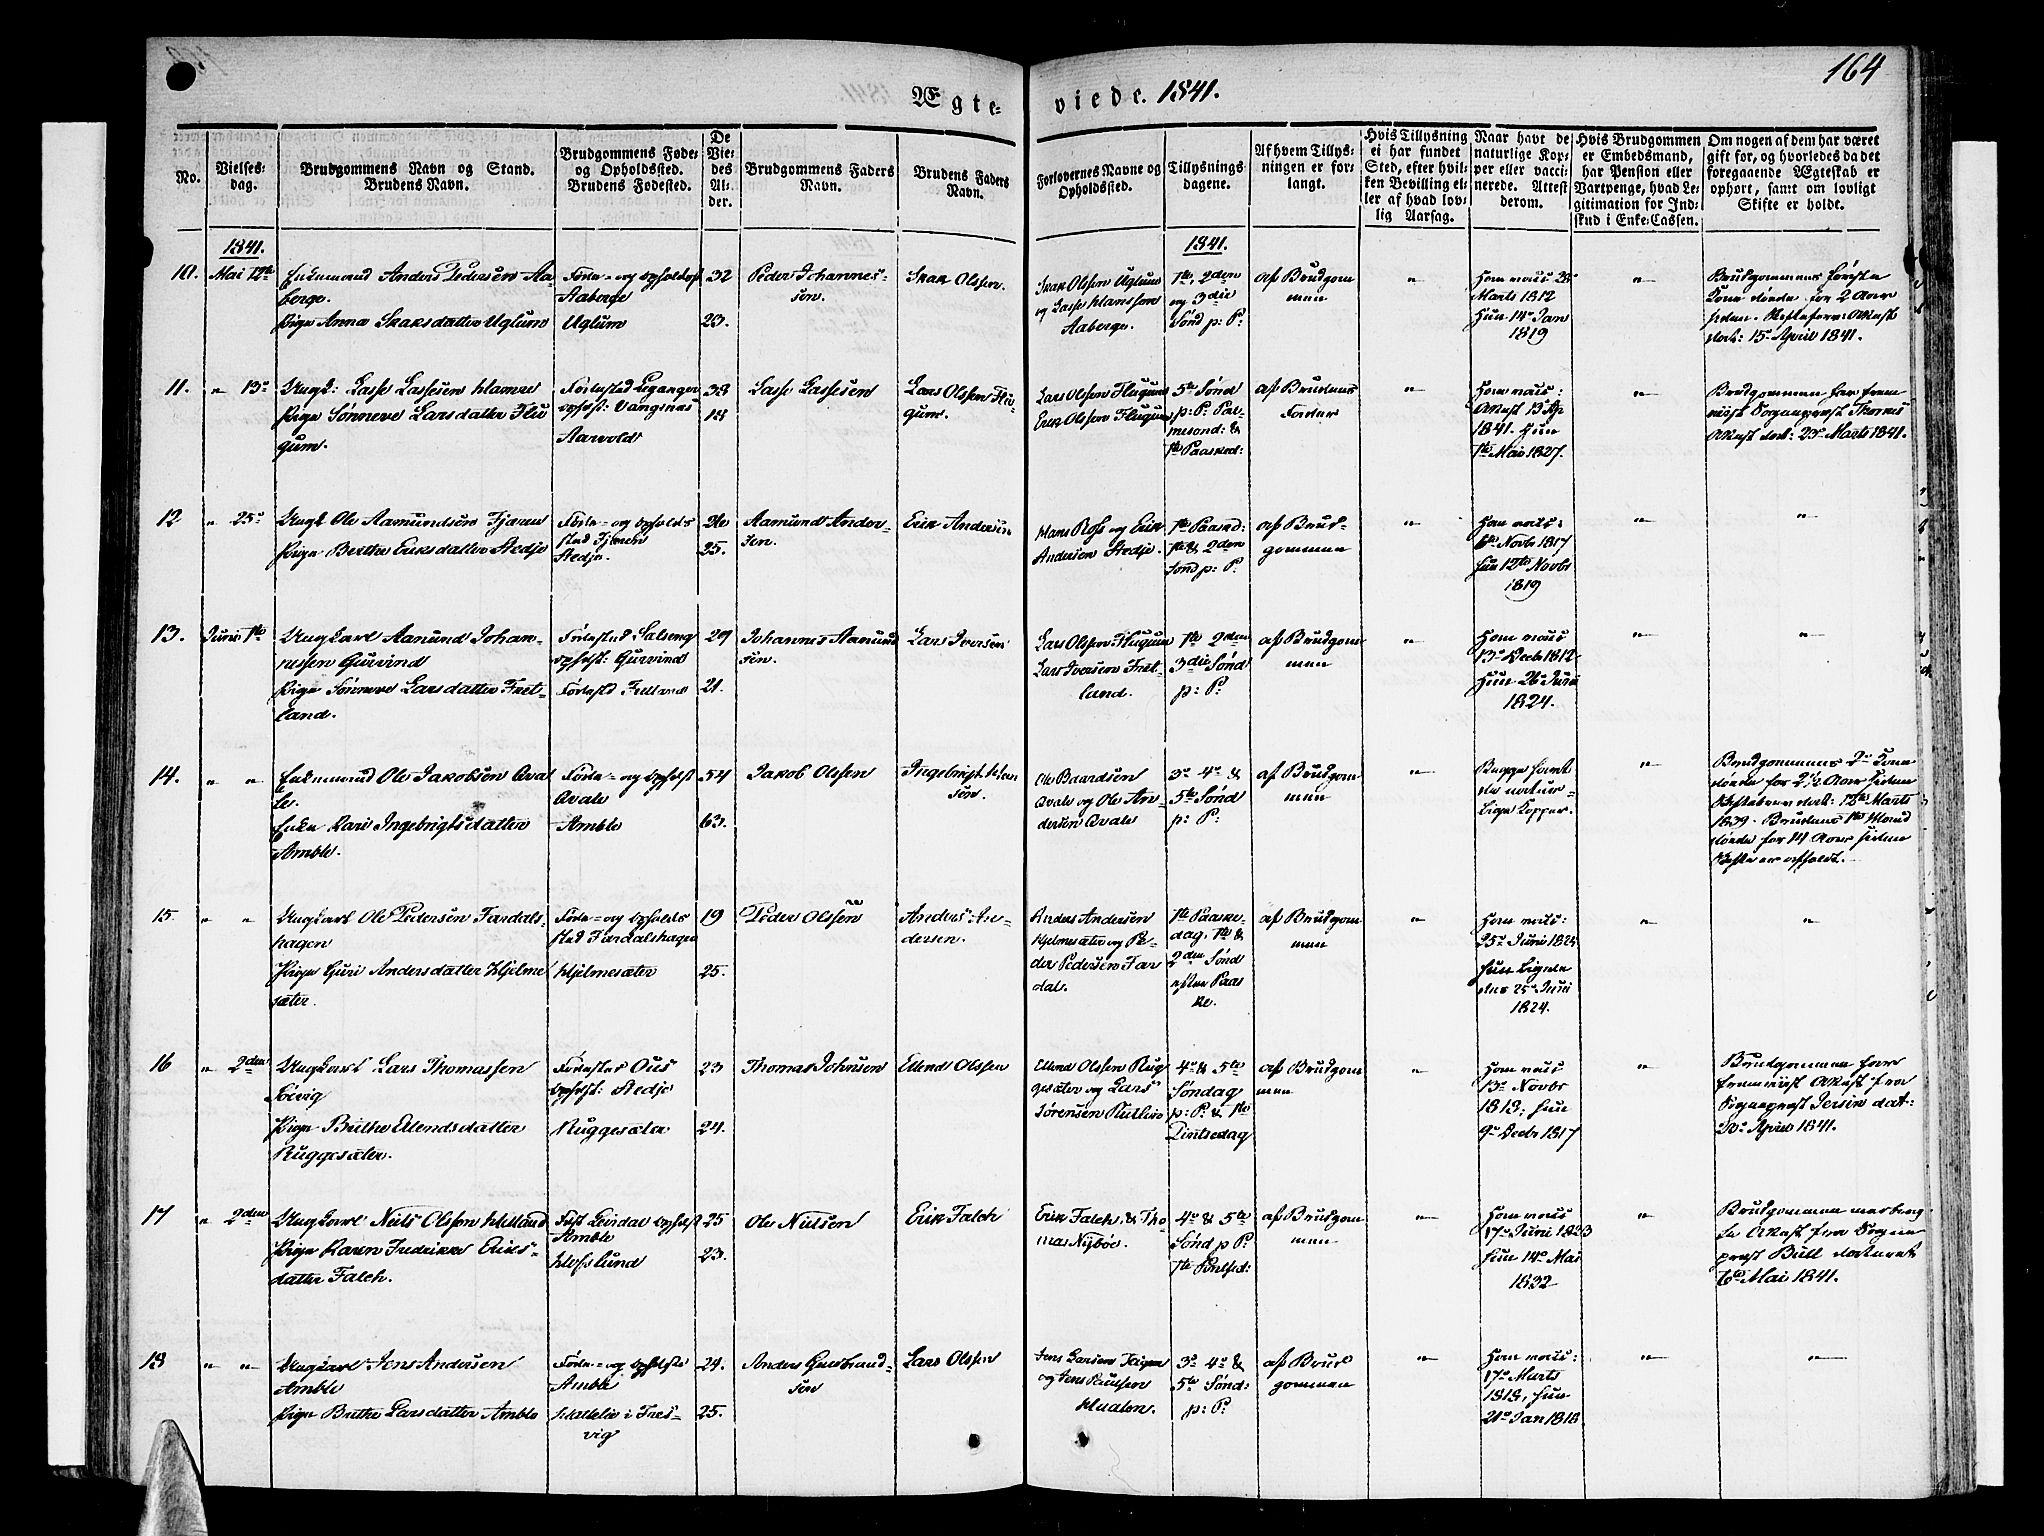 164
Ægte-
viede. 1841.
No.
Vielses-
dag.
Brudgommens Navn og Stand.
Brudens Navn.
Brudgommens Føde-
og Opholdssted.
Brudens Fødested.
De
Vie-
des
Al-
der.
Brudgommens Faders
Navn.
Brudens Faders
Navn.
Forlovernes Navne og
Opholdssted.
Tillysnings
dagene.
Af hvem Tillys-
ningen er for-
langt.
Hvis Tillysning
ei har fundet
Sted, efter hvil-
ken Bevilling el-
ler af hvad lov-
lig Aarsag.
Naar havt de
naturlige Kop-
per eller vacci-
nerede. Attest
derom.
Hvis Brudgommen
er Embedsmand,
har Pension eller
Vartpenge, hvad Le-
gitimation for Ind-
skud i Enke-Cassen.
Om nogen af dem har været
gift før, og hvorledes da det
foregaaende Ægteskab er
ophørt, samt om lovligt
Skifte er holdt.
1841.
1841.
10.
Mai 12te
Enkemand Anders Pedersen Aa-
berge.
Pige Anna Skaksdatter Uglum
Føde- og opholdsst
Aaberge
Uglum
32
23.
Peder Johannes-
sen.
Skak Olssen.
Skak Olssen Uglum
og Lasse Hanssen
Aaberge.
1te, 2den
og 3die
Sønd p: P:
af Brudgom
men
"
Ham vacc: 28
Marts 1812
Hun 14de Jan
1819
"
Brudgommens første
Kone døde for 2 Aar
siden. Skifteforv: Attest
dat: 15de April 1841.
11.
" 13de
Ungk: Lasse Lassesen Hamre
Pige Sønneve Larsdatter Flu
gum.
Fødested Leganger
opholdst: Vangsnæs
Aarvold
38
18
Lasse Lassesen
Lars Olssen Flu-
gum.
Lars Olssen Flugum
Erik Olssen Flugum
5te Sønd
p: P: Pal-
mesønd: &
1te Paasked:
af Brudens
Fader
"
Ham vacc:
Attest 13 Ap
1841. Hun
1te Mai 1827.
"
Brudgommen har frem
viist Sogneprest Thomes
Attest dat: 23de Marts 1841.
12
" 25de
Ungk Ole Aamundsen Fjæren
Pige Berthe Eriksdatter Stedje
Føde- og opholds
sted Fjæren
Stedje.
26
25.
Aamund Ander-
sen.
Erik Andersen
Hans Røs og Erik
Andersen Stedje.
1te Paaskd:
1te & 2den
Sønd p: P:
af Brud-
gommen
"
Ham vacc:
6te Novbr 1817
Hun 12te Novbr
1819
"
"
13.
Juni 1te
Ungkarl Aamund Johan-
nessen Gurvind
Pige Sønneve Larsdatter Fret-
land.
Fødested Salseng
opholdst: Gurvind
Fødested Fretland
29
21.
Johannes Aamund
sen.
Lars Iversen
Lars Olssen Flugum
Lars Iversen Fret-
land.
1te 2den
3die Sønd
p: P:
af Brudgom
men
"
Ham vacc
13de Decbr 1812
Hun 26de Juni
1824.
"
"
14.
" "
Enkemand Ole Jakobsen Qva
le.
Enke Kari Ingebrigtsdatter
Amble.
Føde- og opholdst
Qvale
Amble
54
63.
Jakob Olssen
Ingebrigt
sen.
Ole Baardsen
Qvale og Ole An-
dersen Qvale
3de 4de &
5te Sønd
p: P:
af Brudgom
men
"
Begge havt
de natur-
lige Kopper.
"
Brudgommens 2den Kone
døde for 2½ Aar siden
Skiftebrev dat: 12te Marts
1839. Brudens 1te Mand
døde for 14 Aar siden
Skifte er afholdt.
15.
" "
Ungkarl Ole Pedersen Fardals-
hagen
Pige Guri Andersdatter Hjelme
sæter.
Føde- og opholds
sted Fardalshagen
Hjelmesæter
19
25.
Peder Olssen
Anders An-
dersen.
Anders Andersen
Hjelmesæter og Pe-
der Pedersen Far
dal.
1te Paaske-
dag, 1te &
2den Sønd
efter Paas
ke.
af Brudgom
men
"
Ham vacc:
25de Juni 1824
Hun ligele
des 25de Juni
1824.
"
"
16
" 2den
Ungkarl Lars Thomassen
Søvig
Pige Brithe Ellendsdatter
Ruggesæter.
Fødested Ous
opholdst: Stedje
Ruggesæter
23
24.
Thomas Johnsen
Ellend Olssen
Ellend Olssen Rug
gesæter og Lars
Sørensen Kutlin
4de & 5te
Søndag
p: P: & 1te
Pintsedag
af Brudgom
men
"
Ham vacc:
13de Novbr
1818; Hun
9de Decbr 1817
"
Brudgommen har
fremviist Attest fra
Sogneprest Jersin dat:
April 1841.
17
" 2den
Ungkarl Niels Olssen Hilland
Pige Karen Fredrikke Eriks-
datter Falch.
Fst Leirdal opholdst
Amble
Hofslund
25
23.
Ole Nielsen
Erik Falch
Erik Falch, & Tho-
mas Nybøe.
4de & 5te
Sønd p P:
1te Pintsed:
af Brudgom
men
"
Ham vacc
17de Juni 1823
Hun 14de Mai
1832
"
Brudgommen
Attest fra Sogne
prest Bull dateret
6te Mai 1841.
18
" "
Ungkarl Jens Andersen
Amble
Pige Brithe Larsdatter Amble
Føde- og opholdste
Amble
Hattelie i Fres-
vig
24.
25.
Anders Gulbrand-
sen
Lars Olssen
Jens Larsen
og Jens Paulsen
Hualen.
3de 4de &
5te Sønd:
p: P:
af Brud
gommen
"
Ham vacc:
17de Marts
1818, Hun
21de Jan 1818
"
"